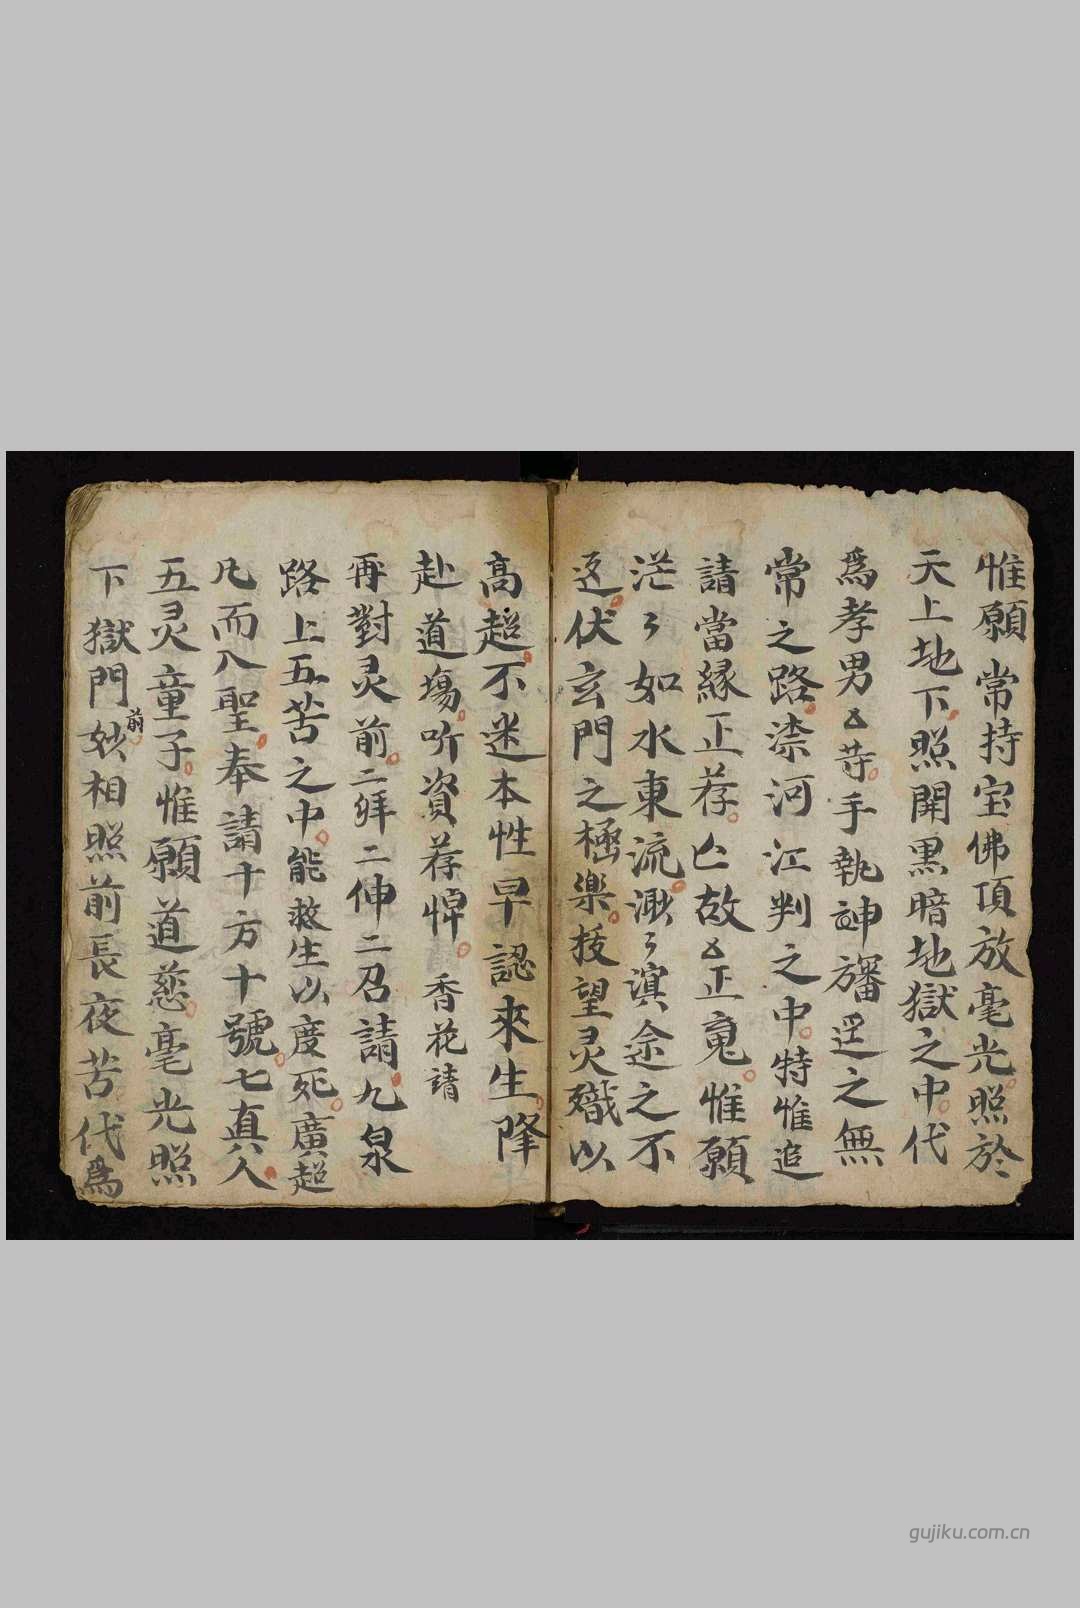 惟願常持宝佛頂放毫光照於
天上地下照開黒暗地獄之中代
爲孝男厶䒭手執神旛逕之無
常之路渿河江判之中特惟追
請當緣正荐亡故厶正䰟惟願
茫〻如水東流渺〻溟途之不
返伏玄門之極楽抜望灵職以
高超不迷本性早認來生降
赴道塲听資荐悼香花請
再對灵前二拜二伸二召請九泉
路上五苦之中能救生以度死廣超
凡而入聖奉請十方十號七真人
五灵童子惟願道慈毫光照
下獄門前妙相照前長夜苦代爲
gujiku.com.cn